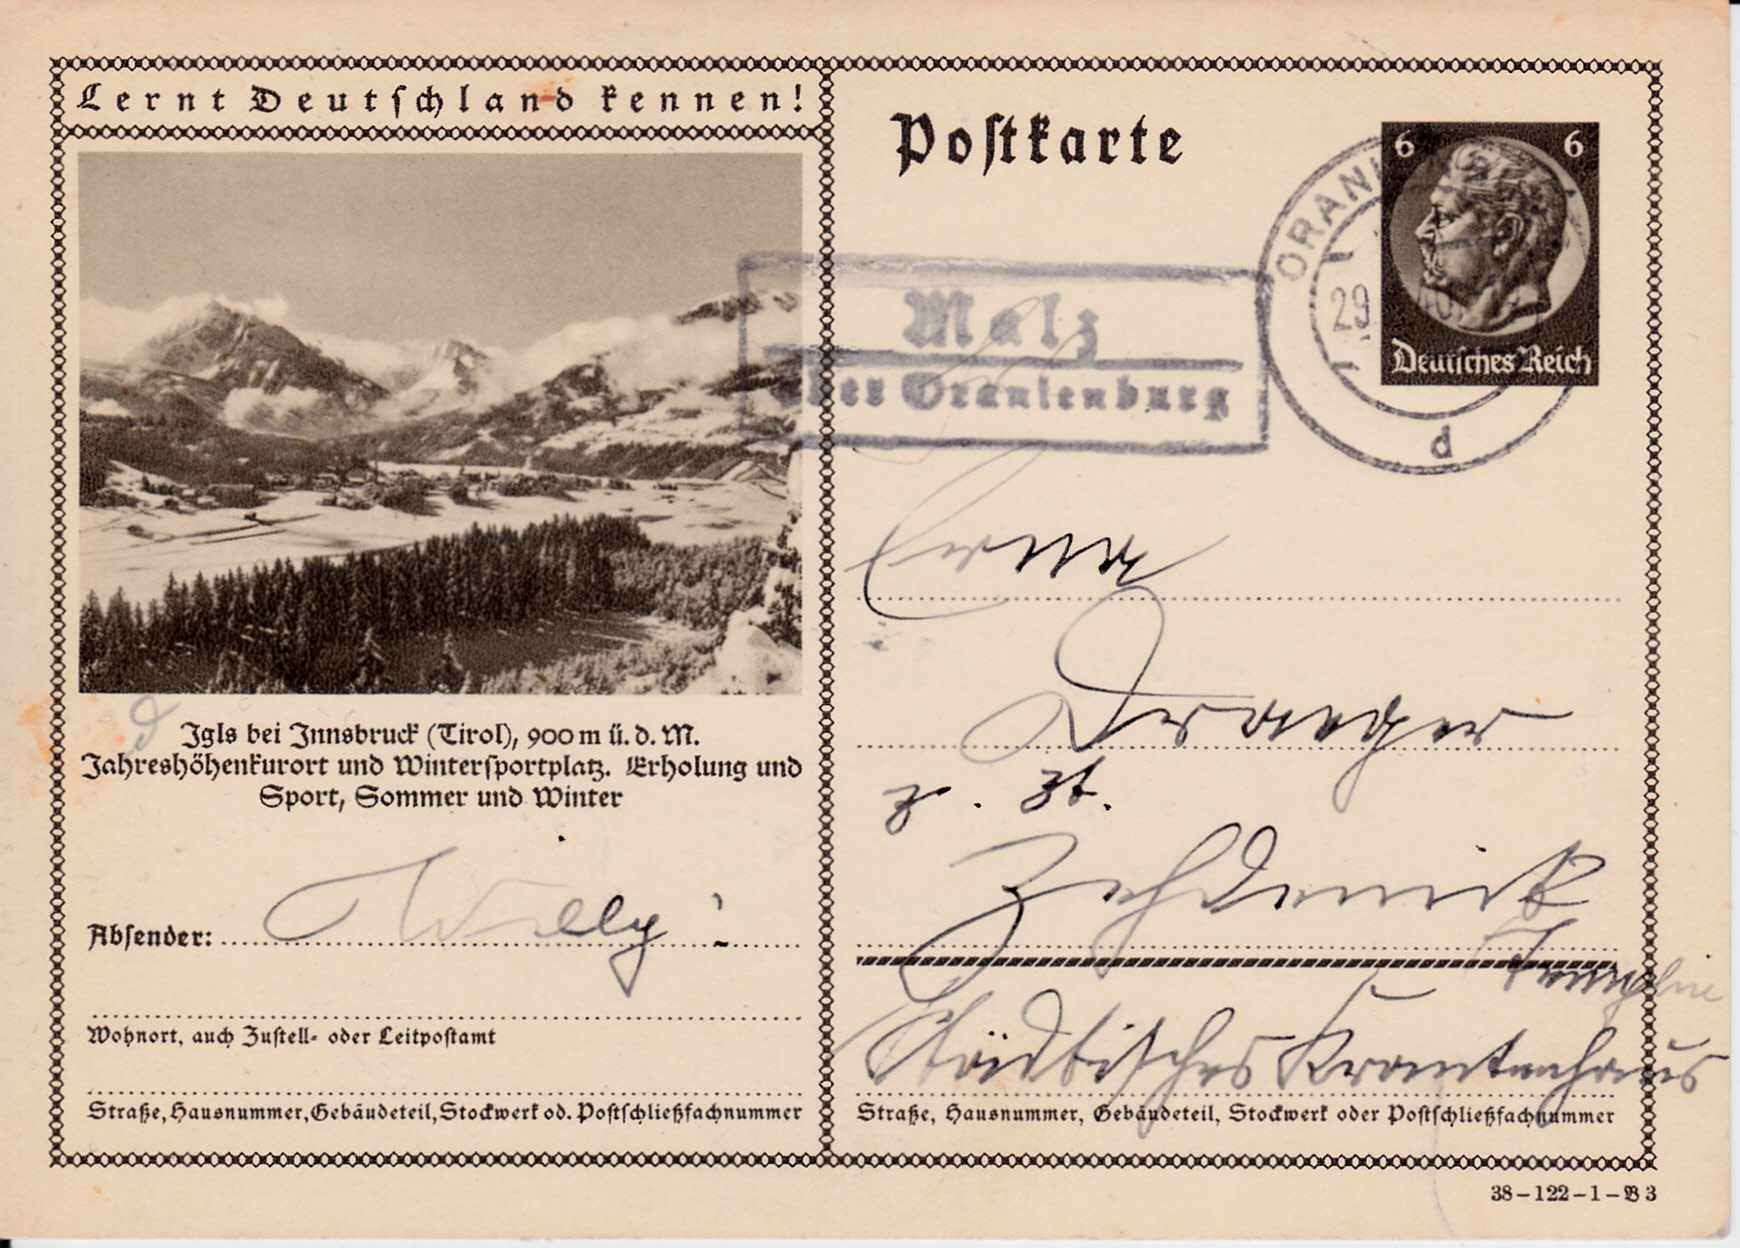 Lernt Deutschland kennen!
Igls bei Innsbruck (Tirol), 900 m ü. d. M.
Jahreshöhenkurort und Wintersportplatz. Erholung und
Sport, Sommer und Winter
Absender: Willy!
Wohnort, auch Zustell- oder Leitpostamt
Straße, Hausnummer, Gebäudeteil, Stockwerk od. Postschließfachnummer
Postkarte
6 6
Deutsches Reich
29
d
Malz
über Oranienburg
Erna
Draeger
z. Zt.
Zehdenick
Templin
Städtisches Krankenhaus
Straße, Hausnummer, Gebäudeteil, Stockwerk oder Postschließfachnummer
38–122–1–B 3